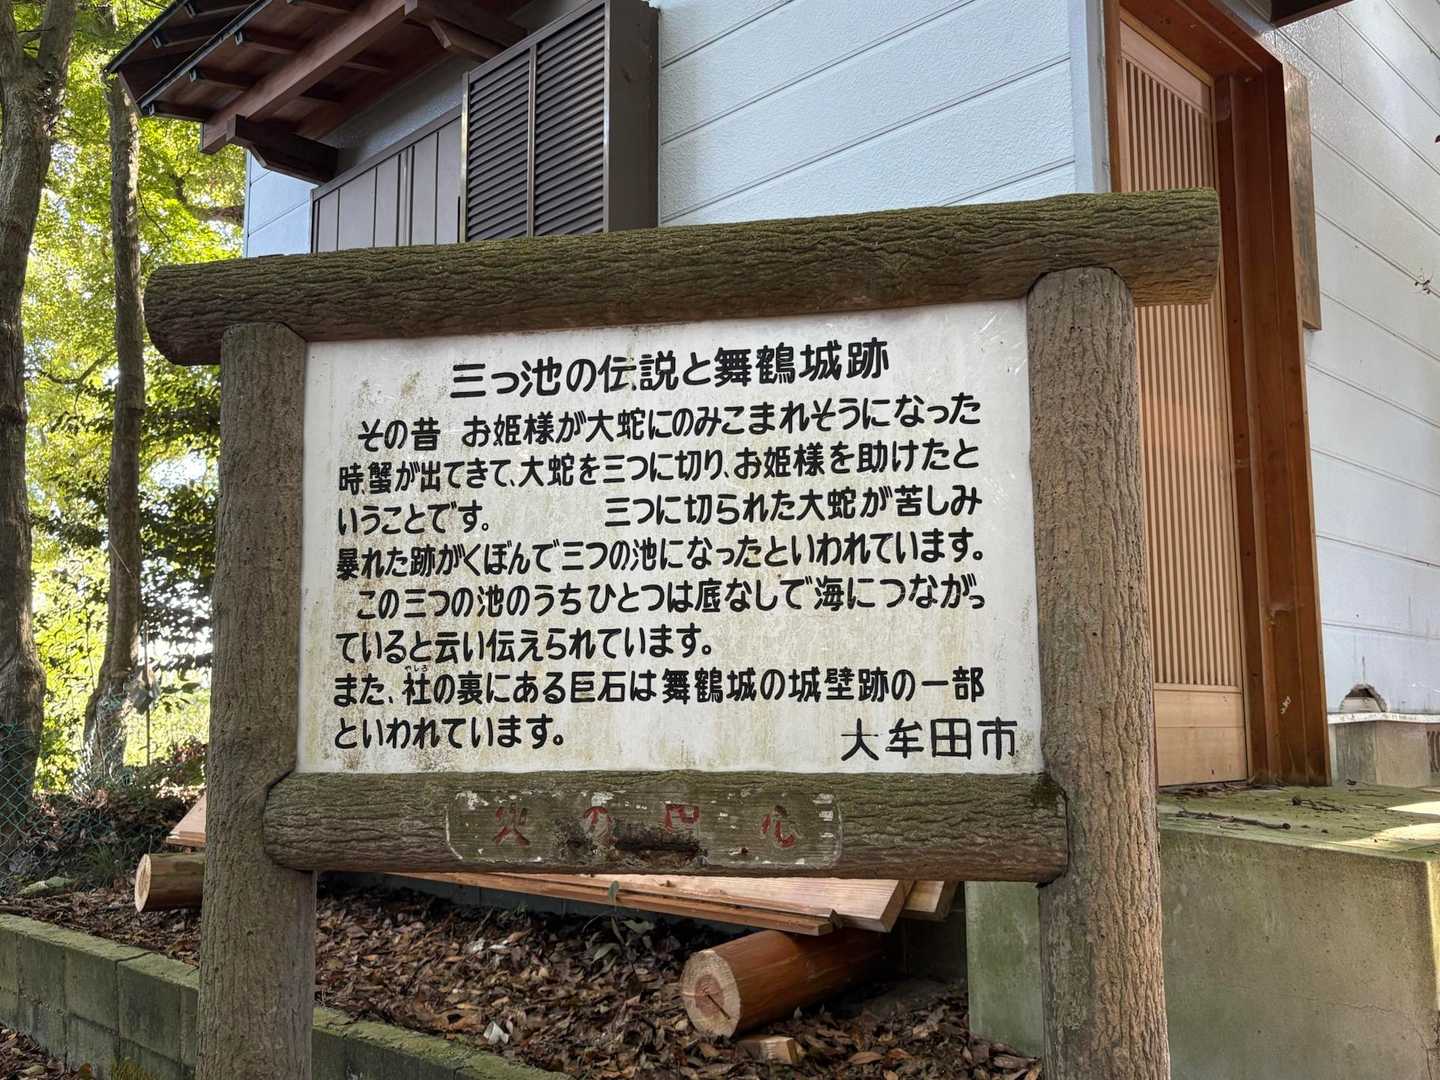 三っ池の伝説と舞鶴城跡
その昔 お姫様が大蛇にのみこまれそうになった
時、蟹が出てきて、大蛇を三つに切り、お姫様を助けたと
いうことです。 三つに切られた大蛇が苦しみ
暴れた跡がくぼんで三つの池になったといわれています。
この三つの池のうちひとつは底なしで海につながっ
ていると云い伝えられています。
やしろ
また、社の裏にある巨石は舞鶴城の城壁跡の一部
といわれています。
大牟田市
火の